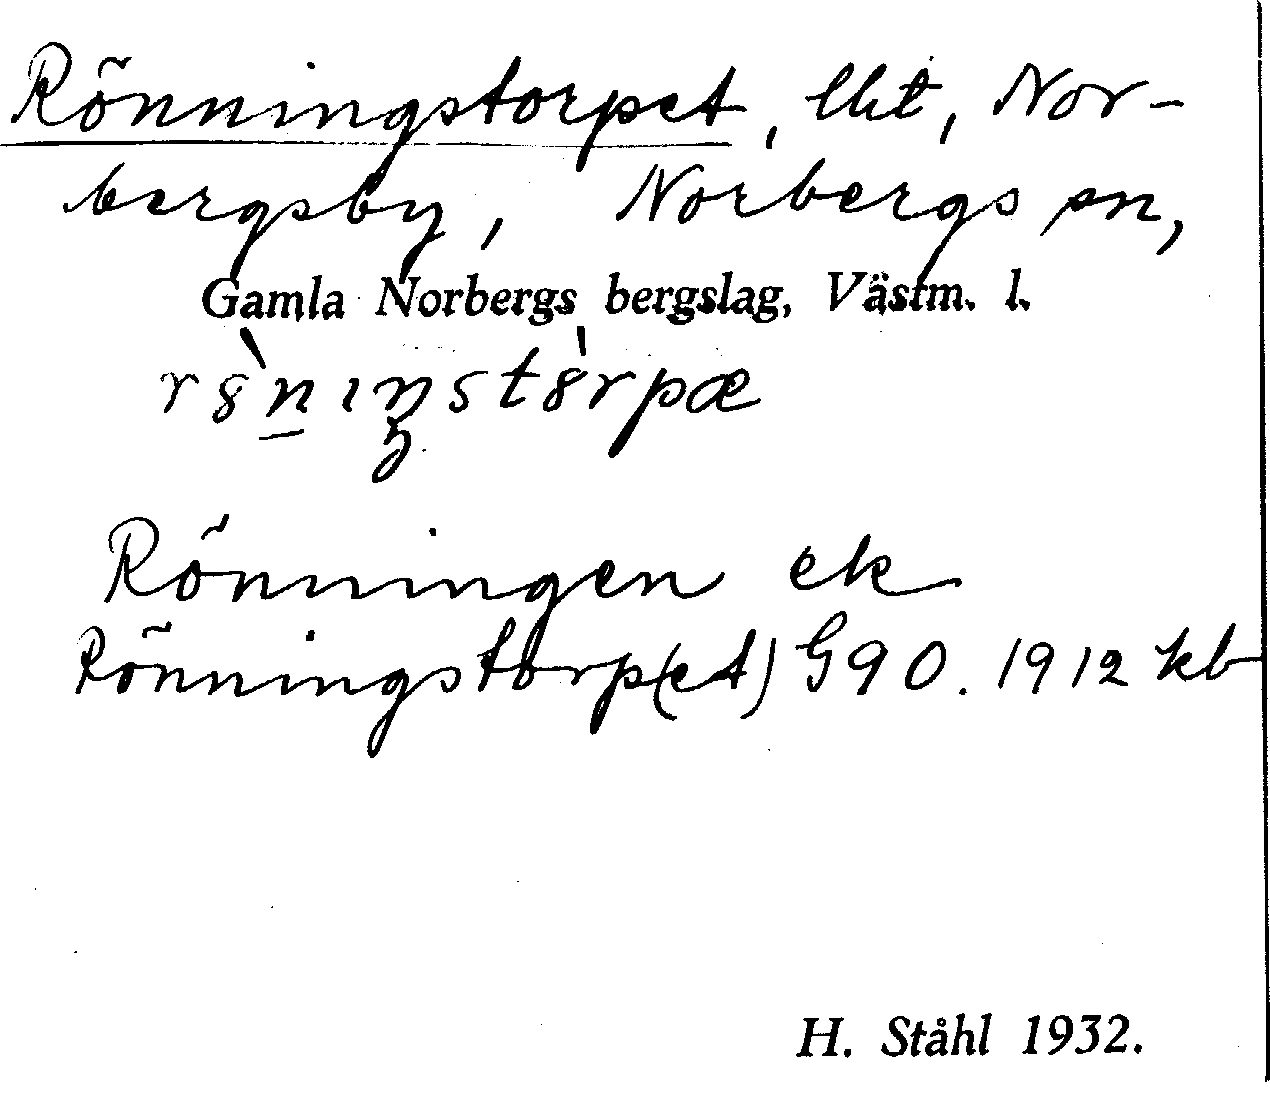 Rönningstorpet, lht, Nor-
bergsby, Norbergs sn,
Gamla Norbergs bergslag, Västm. l.
Rönningen ek
Rönningstorp(et) G90. 1912 kb
H. Ståhl 1932.